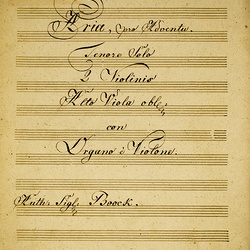 Aria, pro Adventu.
Tenore Solo
2 Violinis
Alto Viola obl:
con
Organo è Violone.
Auth: Sigl: Boock.